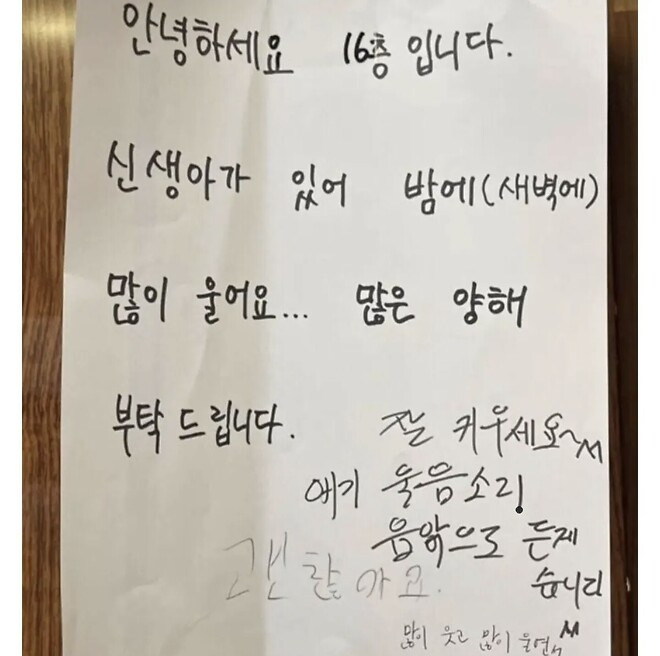 안녕하세요 16층 입니다.
신생아가 있어 밤에(새벽에)
많이 울어요... 많은 양해
부탁 드립니다.
잘 키우세요~^^
애기 울음소리
음앆으로
습니다
괜찮아요.
많이 웃고 많이